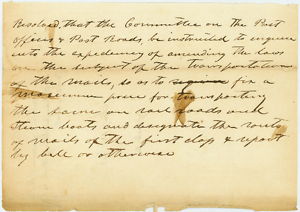 Resolved, that the Committee on the Post
offices & Post Roads be instructed to enquire
into the expediency of amending the laws
on the subject of the transportation
of the mails, so as to require fix a
maximum price for transporting
the same on rail roads and
Steam boats and designate the routs
of mails of the first class & report
by bill or otherwise